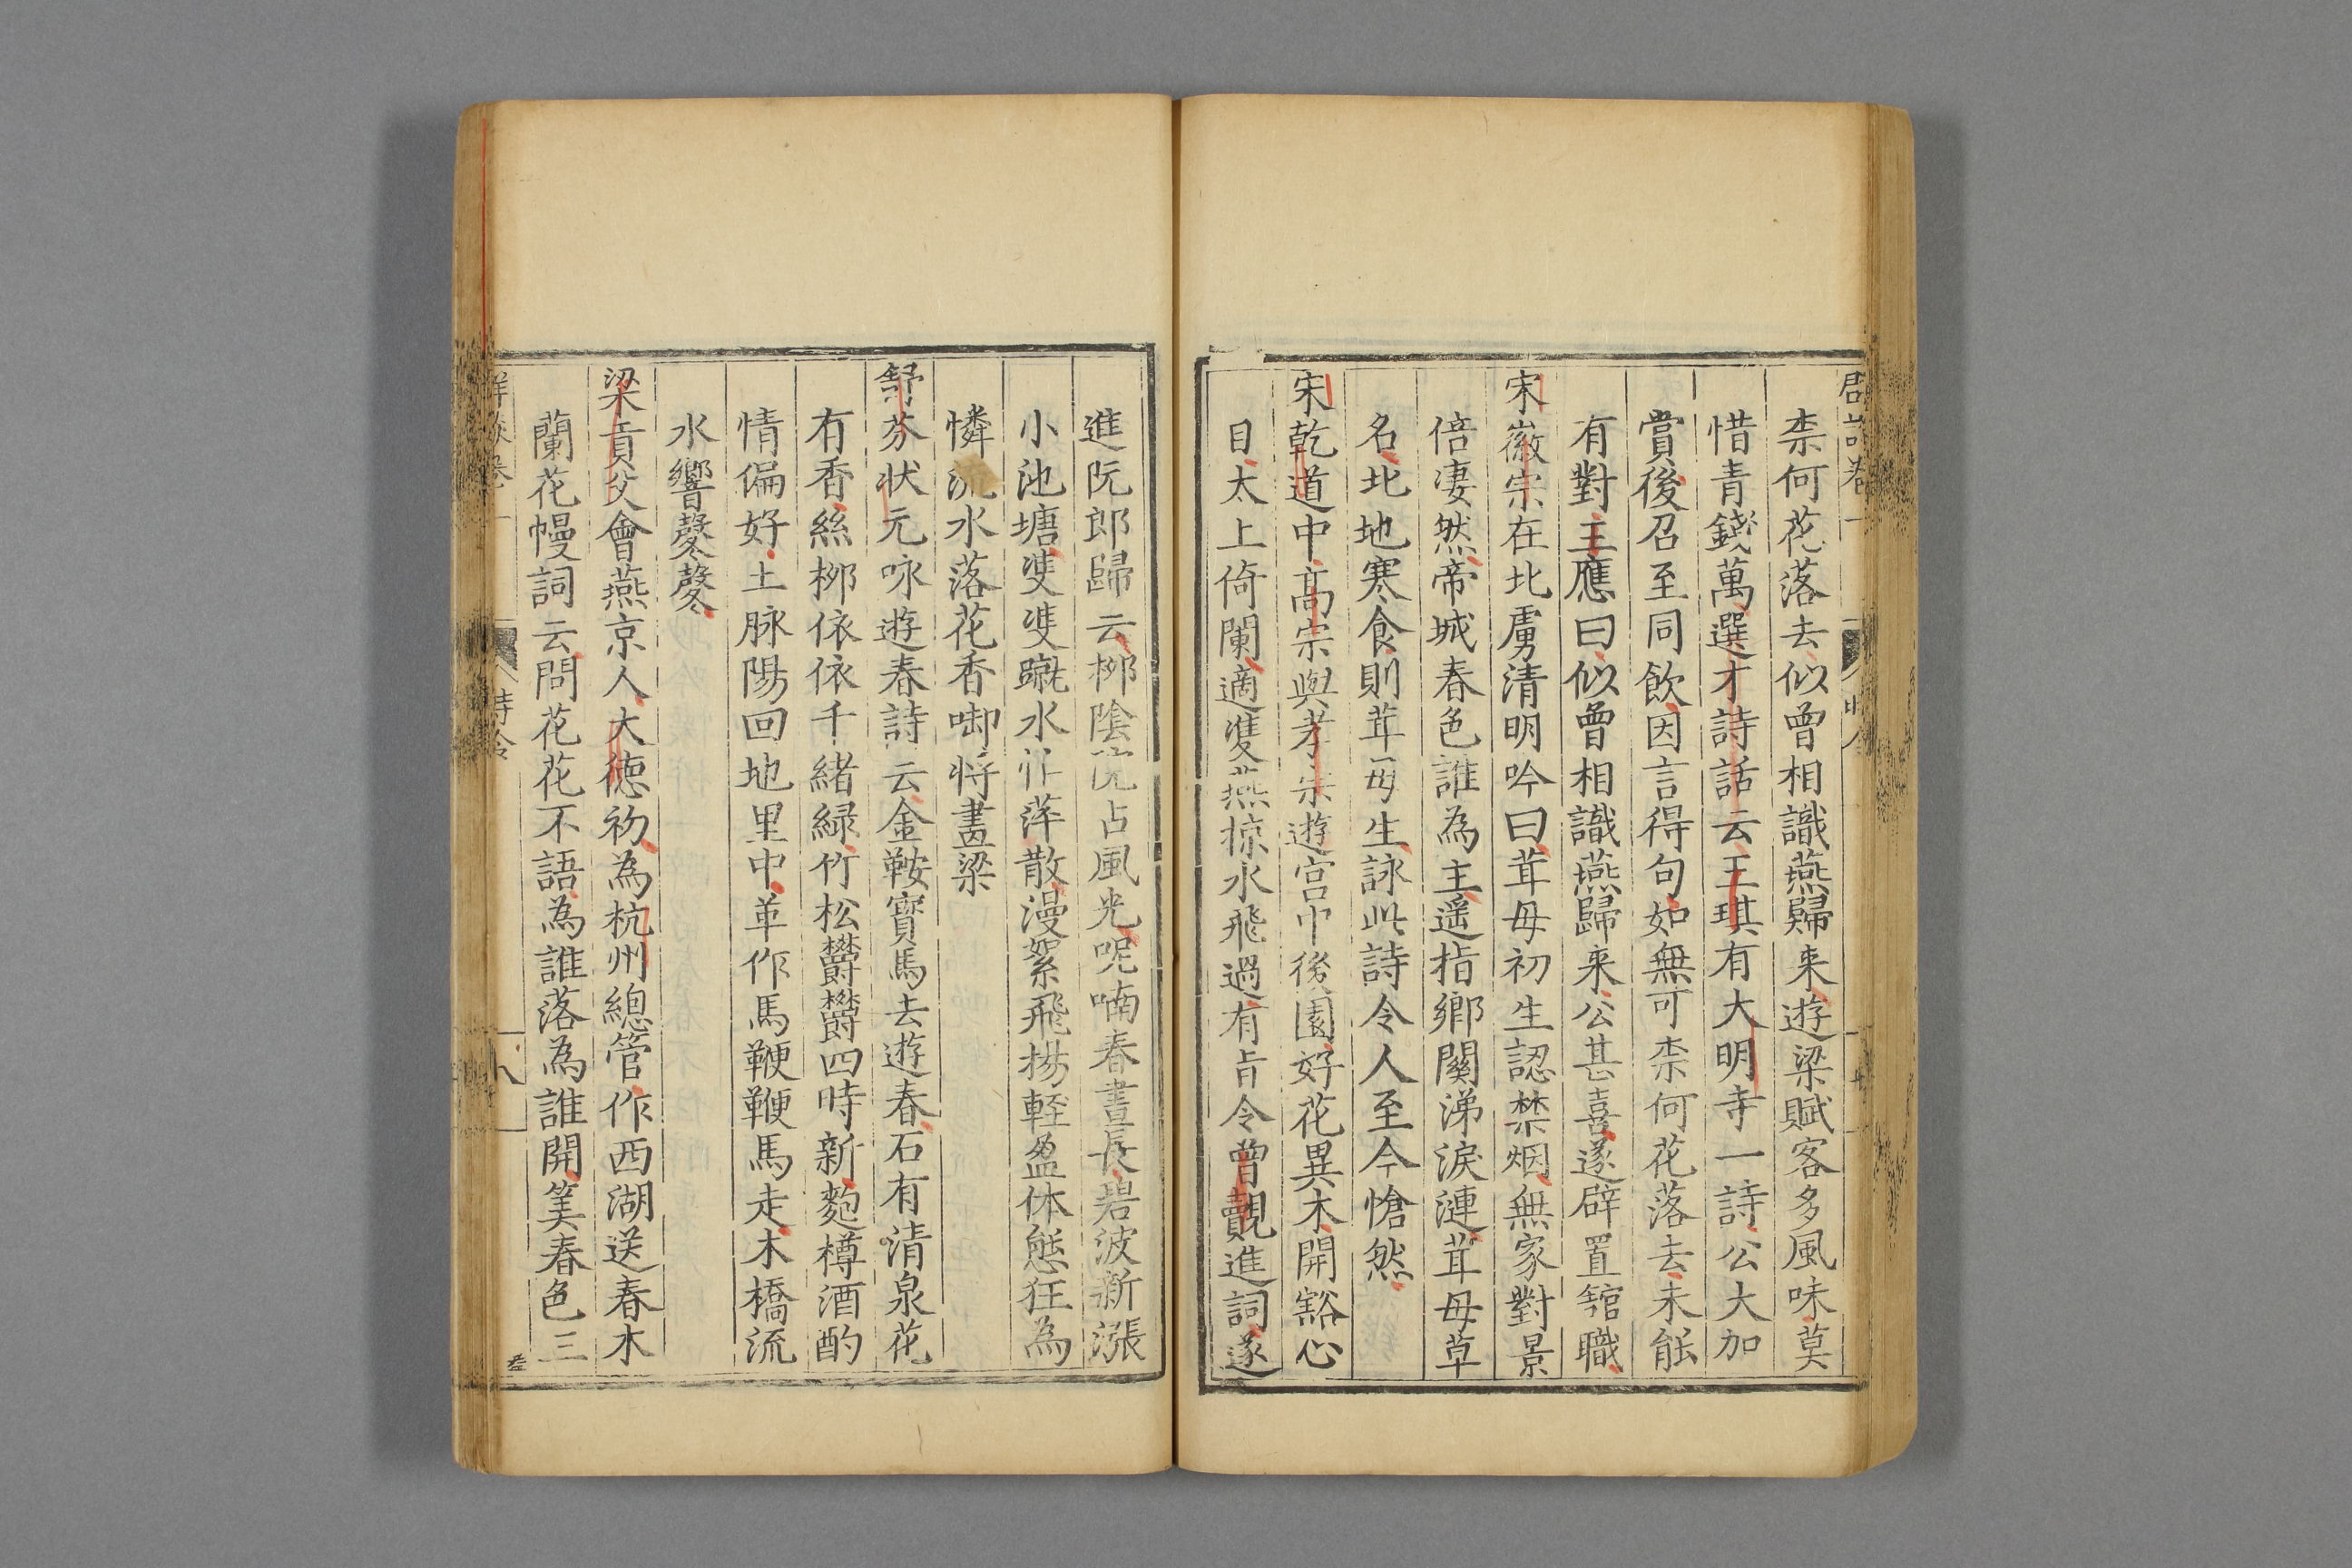 柰何花落去似曾相識燕歸来遊梁賦客多風味莫
惜青錢萬選才詩話云王琪有大明寺一詩公大加
賞後召至同飲因言得句如無可柰何花落去未能
有對王應曰似曾相識燕歸来公甚喜遂辟置舘職
宋徽宗在北虜清明吟曰茸母初生認禁烟無家對景
倍凄然帝城春色誰為主遥指鄉關涕淚漣茸母草
名北地寒食則茸母生詠此詩令人至今愴然
宋乾道中高宗與孝宗遊宫中後園好花異木開豁心
目太上倚闌適雙燕掠水飛過有旨令曾覿進詞遂
進阮郎歸云栁陰院占風光呢喃春晝長碧波新漲
小池塘雙雙蹴水忙萍散漫絮飛揚輕盈体態狂為
憐流水落花香啣将畫梁
舒芬状元咏遊春詩云金鞍寳馬去遊春石有清泉花
有香絲栁依依千緒緑竹松欝欝四時新麯樽酒酌
情偏好土脉陽回地里中革作馬鞭鞭馬走木橋流
水響鼕鼕
梁貢父會燕京人大徳初為杭州總管作西湖送春木
蘭花幔詞云問花花不語為誰落為誰開筭春色三
八